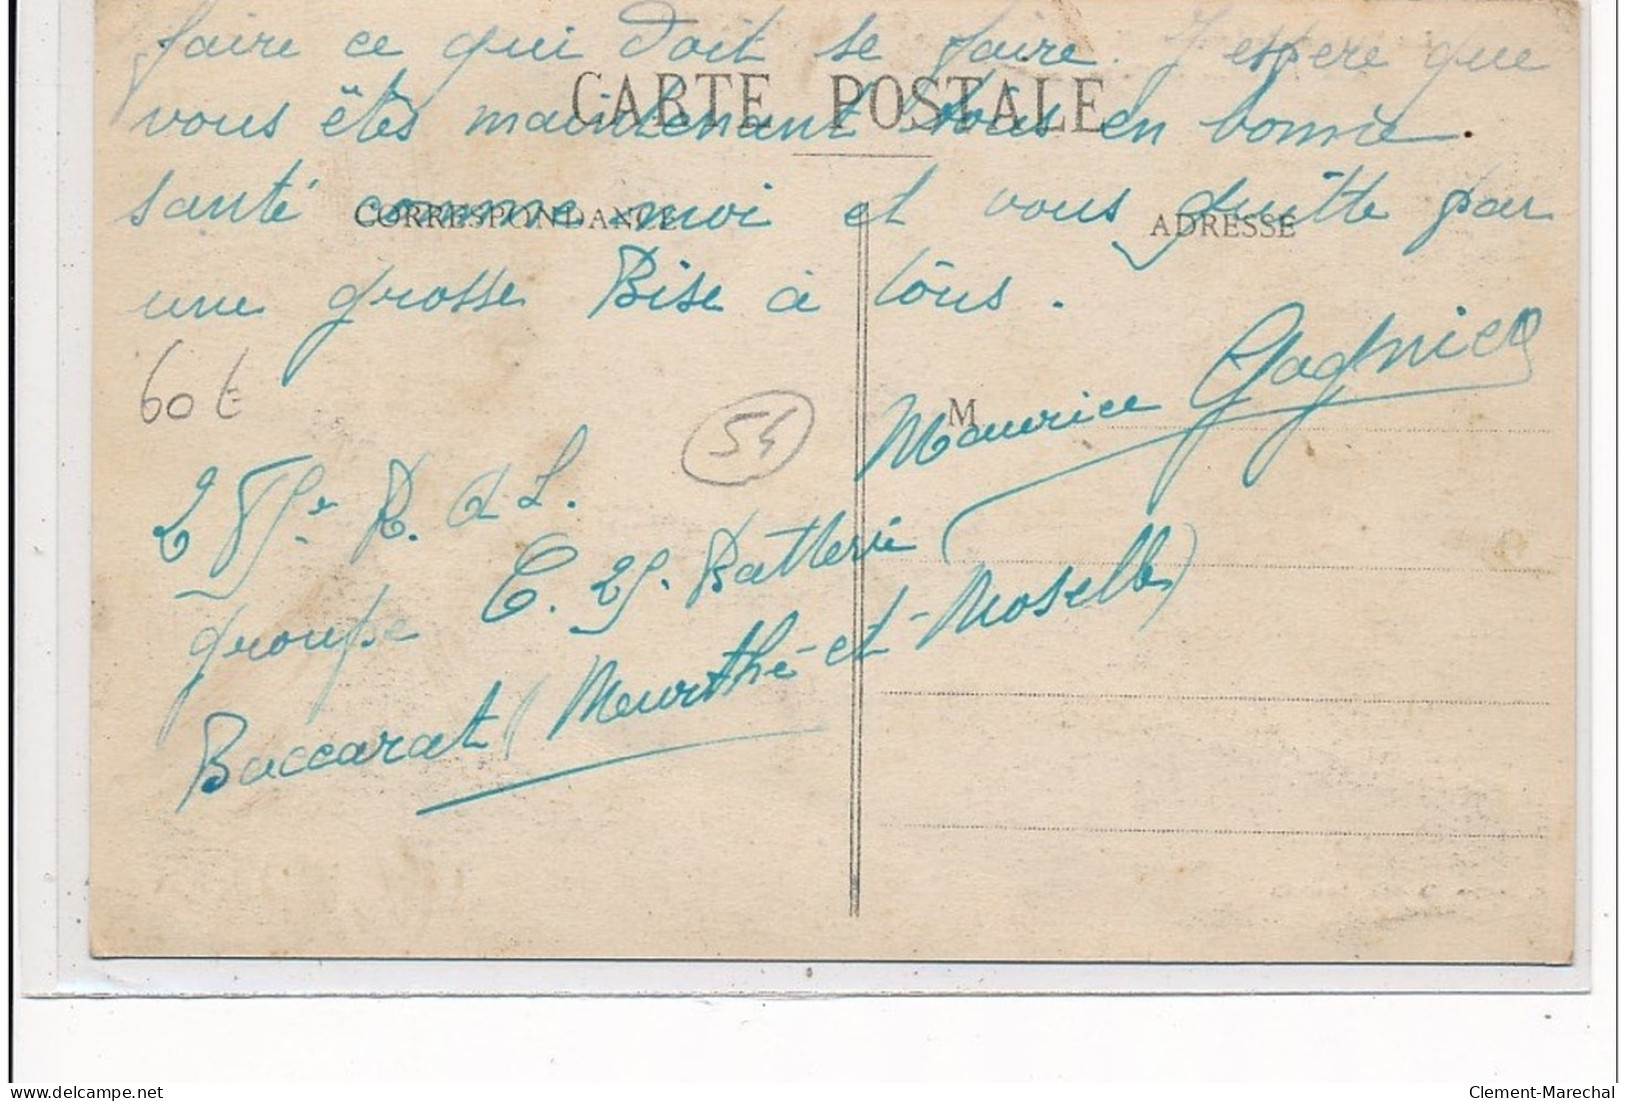 faire ce qui doit se faire. J'espère que
CARTE POSTALE
vous êtes maintenant tous en bonne.
santé comme moi et vous quitte par
CORRESPONDANCE
ADRESSE
une grosse Bise à tous.
60 t
54
M
Maurice
R. d. L.
groupe E. 2S. Batterie
Baccarat (Meurthe-et-Moselle)
delcampe.net
Clement-Marechal